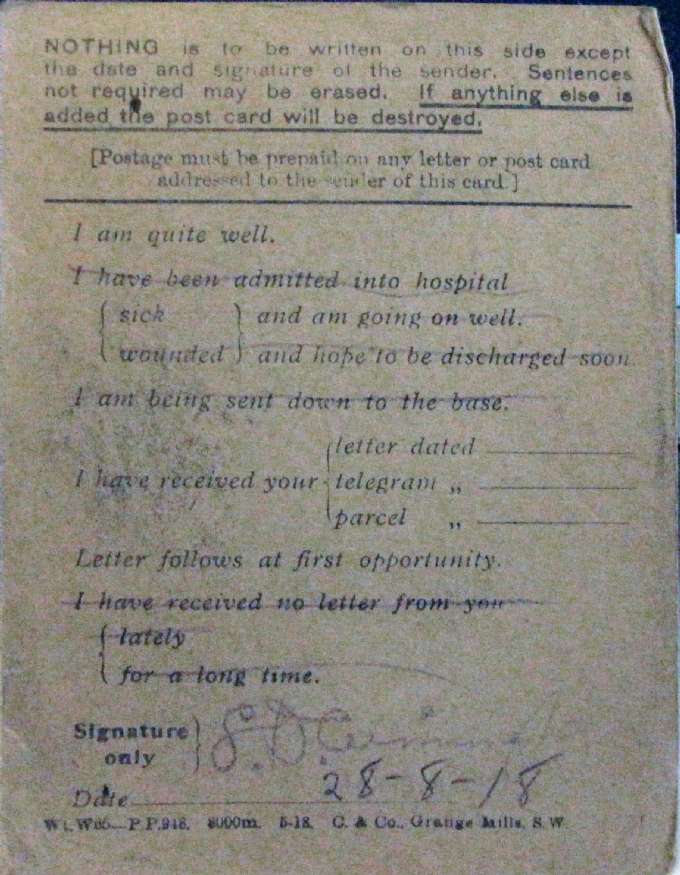 NOTHING is to be written on this side except
the date and signature of the sender. Sentences
not required may be erased. If anything else is
added the post card will be destroyed.
[Postage must be prepaid on any letter or post card
addressed to the sender of this card.]
I am quite well.
I have been admitted into hospital
{ sick } and am going on well.
{ wounded } and hope to be discharged soon.
I am being sent down to the base.
{ letter dated
I have received your { telegram „
{ parcel „
Letter follows at first opportunity.
I have received no letter from you
{ lately
{ for a long time.
Signature } S. D.
only
Date 28-8-18
Wt. W65—P.P.948. 8000m. 5-18. C. & Co., Grange Mills, S.W.